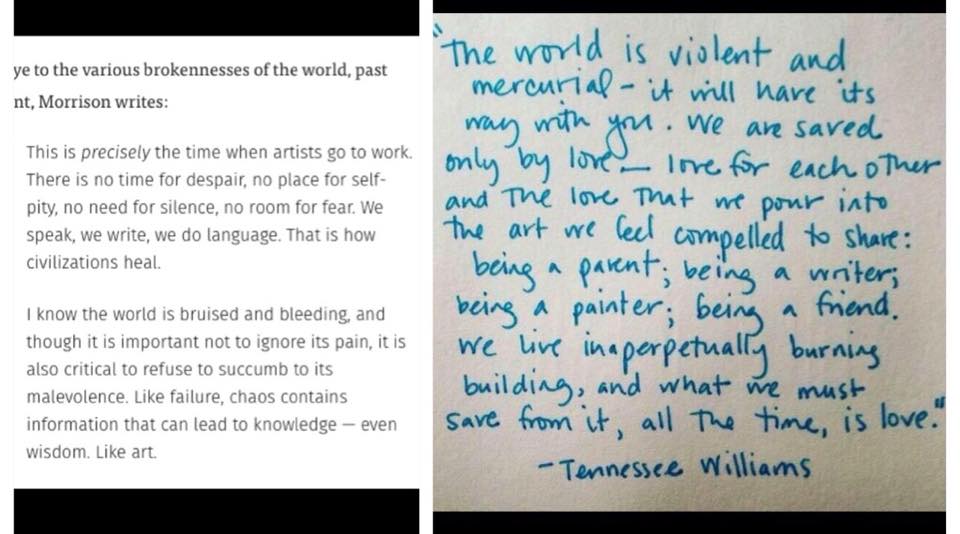 ye to the various brokennesses of the world, past
nt, Morrison writes:
This is precisely the time when artists go to work.
There is no time for despair, no place for self-
pity, no need for silence, no room for fear. We
speak, we write, we do language. That is how
civilizations heal.
I know the world is bruised and bleeding, and
though it is important not to ignore its pain, it is
also critical to refuse to succumb to its
malevolence. Like failure, chaos contains
information that can lead to knowledge — even
wisdom. Like art.
"The world is violent and
mercurial - it will have its
way with you. We are saved
only by love — love for each other
and the love that we pour into
the art we feel compelled to share:
being a parent; being a writer;
being a painter; being a friend.
We live in a perpetually burning
building, and what we must
save from it, all the time, is love."
- Tennessee Williams